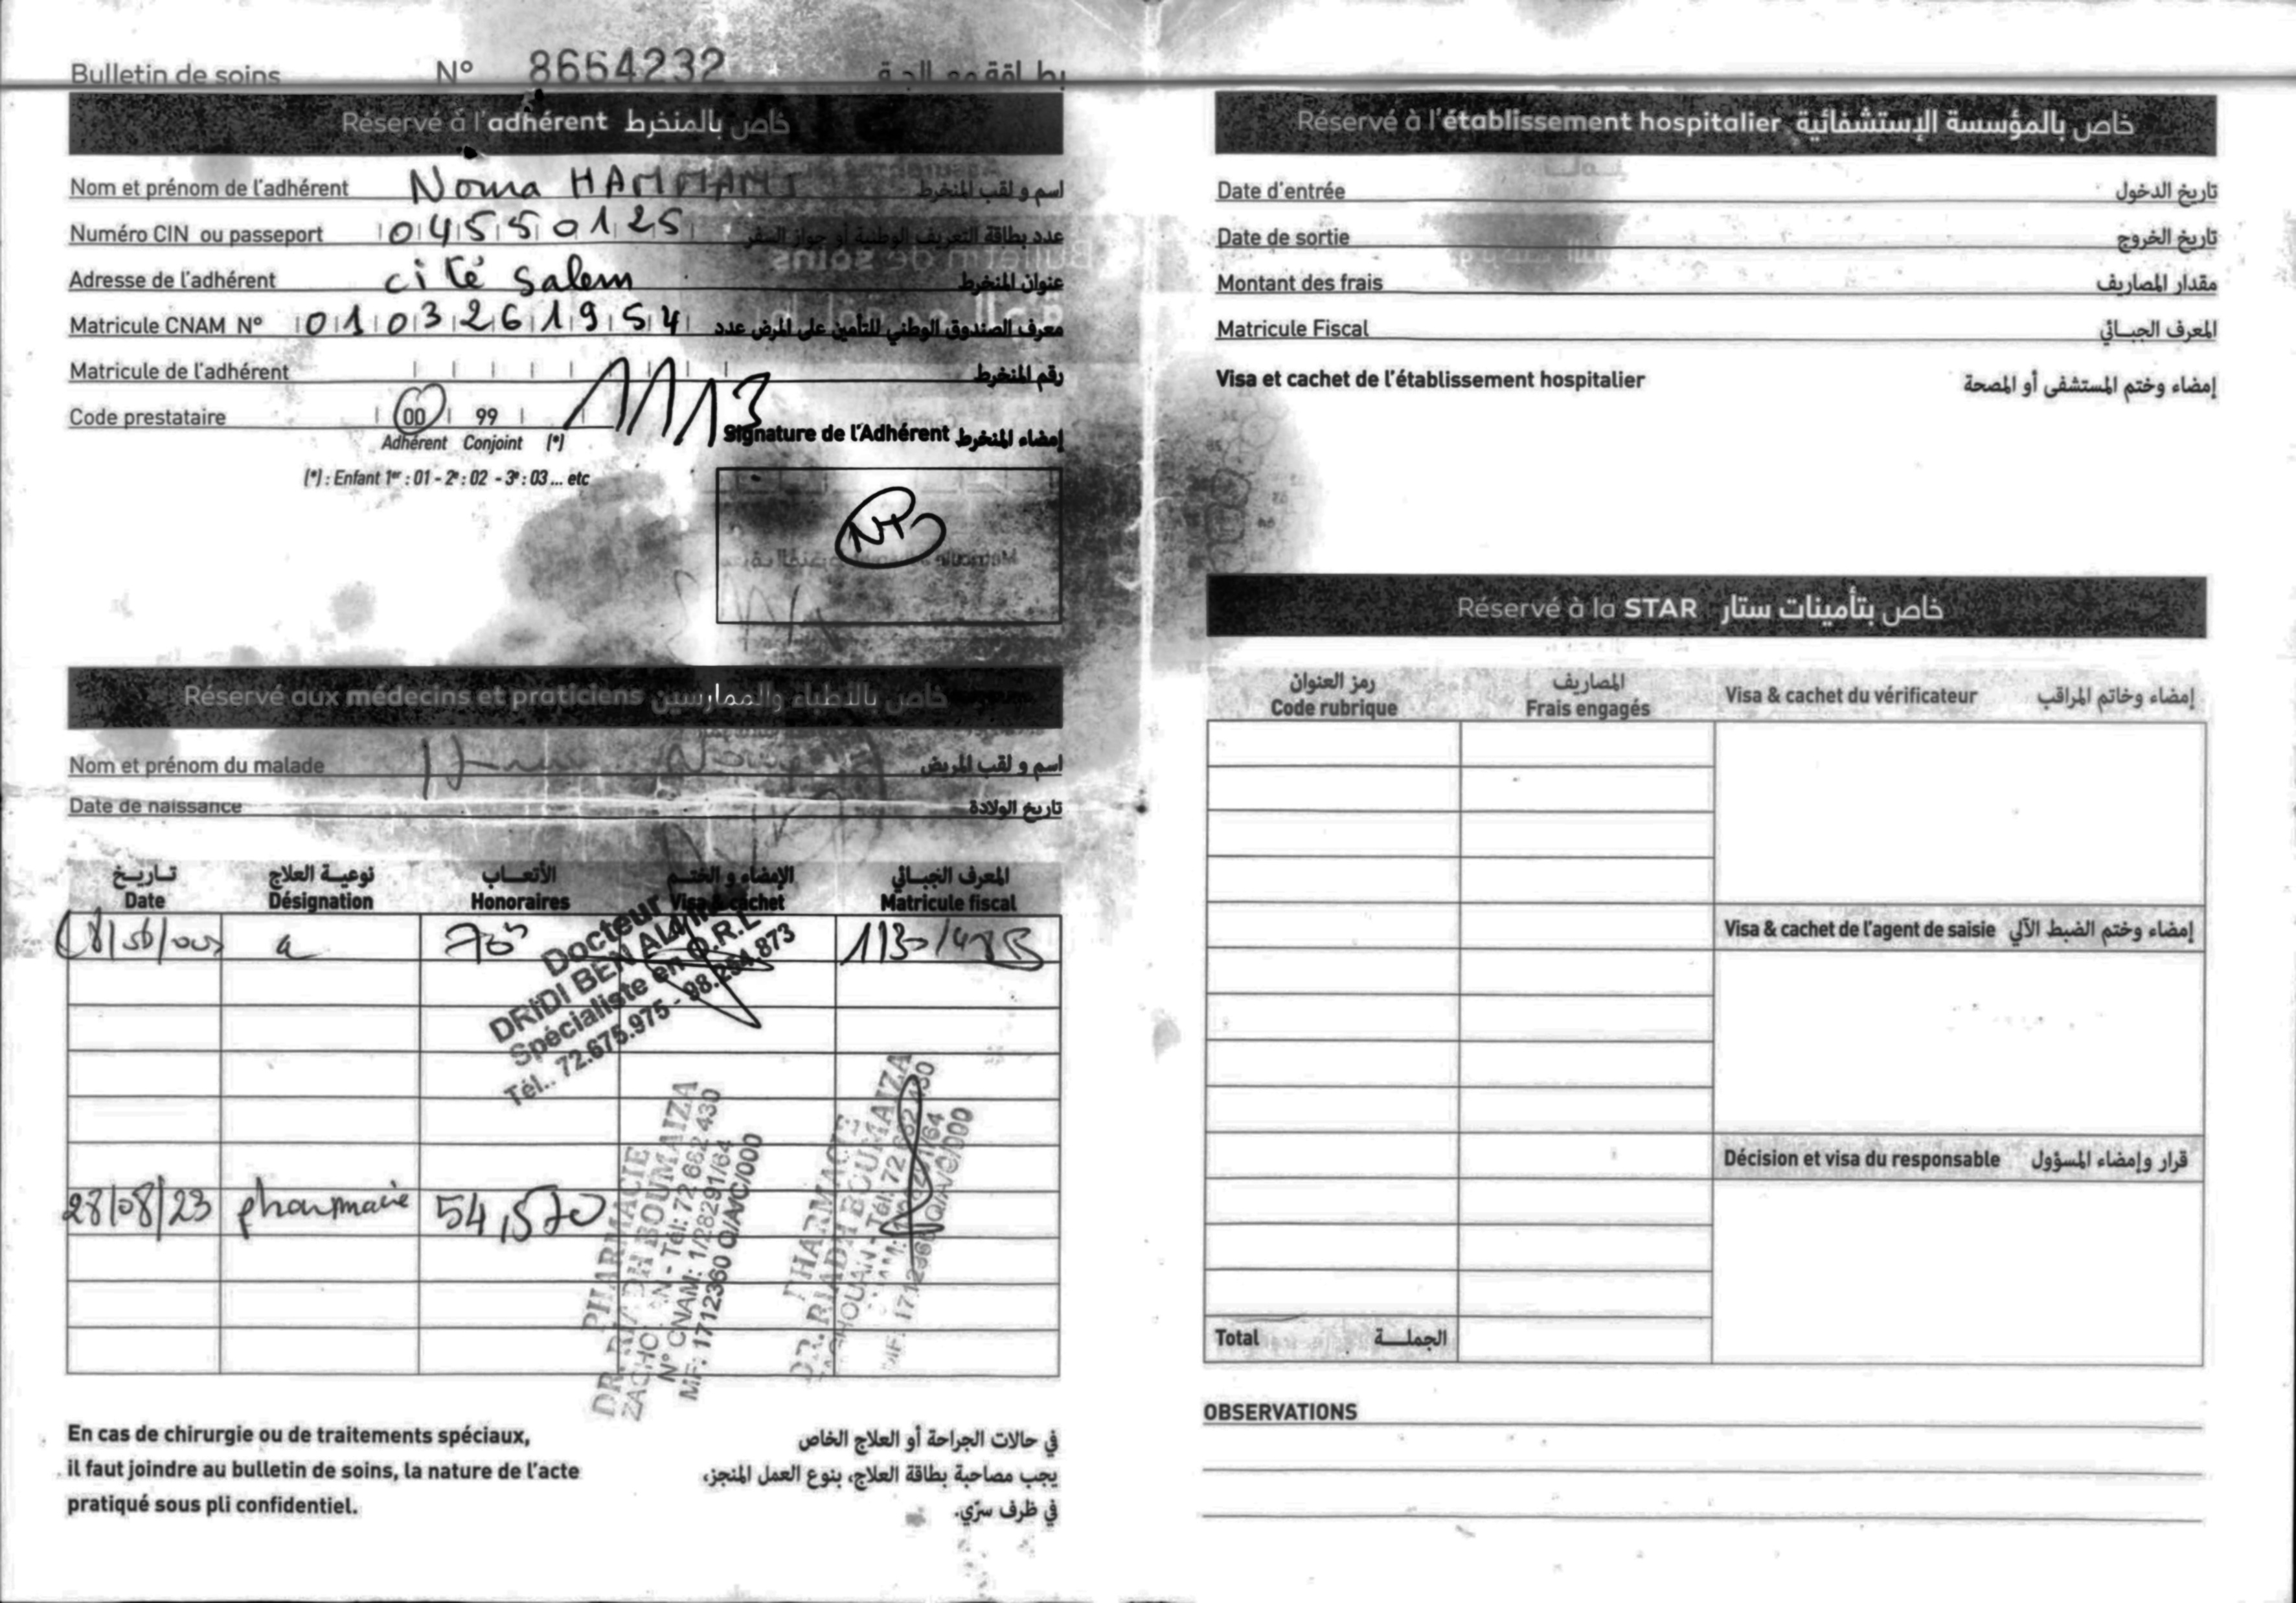 Bulletin de soins N° 8654232 بطاقة معالجة
Réservé à l'adhérent خاص بالمنخرط
Nom et prénom de l'adhérent Noma HAMMAMI اسم و لقب المنخرط
Numéro CIN ou passeport 04550125 عدد بطاقة التعريف الوطنية أو جواز السفر
Adresse de l'adhérent cité Salem عنوان المنخرط
Matricule CNAM N° 0103261954 معرف الصندوق الوطني للتأمين على المرض عدد
Matricule de l'adhérent 1113 رقم المنخرط
Code prestataire 00 99
Adhérent Conjoint (*)
(*) : Enfant 1er : 01 - 2e : 02 - 3e : 03 ... etc
Signature de l'Adhérent إمضاء المنخرط
Réservé aux médecins et praticiens خاص بالأطباء والممارسين
Nom et prénom du malade اسم و لقب المريض
Date de naissance تاريخ الولادة
تـاريـخ نوعيـة العلاج الأتعـاب الإمضاء و الختـم المعرف الجبـائي
Date Désignation Honoraires Visa & cachet Matricule fiscal
Docteur
DRIDI BEN ALAYA
Spécialiste en O.R.L
Tél.. 72.675.975 - 98.254.873
28/08/23 pharmacie 54,570
PHARMACIE
DR. RIADH BOUMAIZA
ZAGHOUAN - Tél: 72 682 430
N° CNAM: 1/28291/64
MF: 1712360 Q/A/C/000
PHARMACIE
DR. RIADH BOUMAIZA
ZAGHOUAN - Tél: 72 682 430
En cas de chirurgie ou de traitements spéciaux,
il faut joindre au bulletin de soins, la nature de l'acte
pratiqué sous pli confidentiel.
في حالات الجراحة أو العلاج الخاص
يجب مصاحبة بطاقة العلاج، بنوع العمل المنجز،
في ظرف سرّي.
Réservé à l'établissement hospitalier خاص بالمؤسسة الإستشفائية
Date d'entrée تاريخ الدخول
Date de sortie تاريخ الخروج
Montant des frais مقدار المصاريف
Matricule Fiscal المعرف الجبـائي
Visa et cachet de l'établissement hospitalier إمضاء وختم المستشفى أو المصحة
Réservé à la STAR خاص بتأمينات ستار
رمز العنوان المصاريف
Code rubrique Frais engagés Visa & cachet du vérificateur إمضاء وخاتم المراقب
Visa & cachet de l'agent de saisie إمضاء وختم الضبط الآلي
Décision et visa du responsable قرار وإمضاء المسؤول
Total الجملـــة
OBSERVATIONS